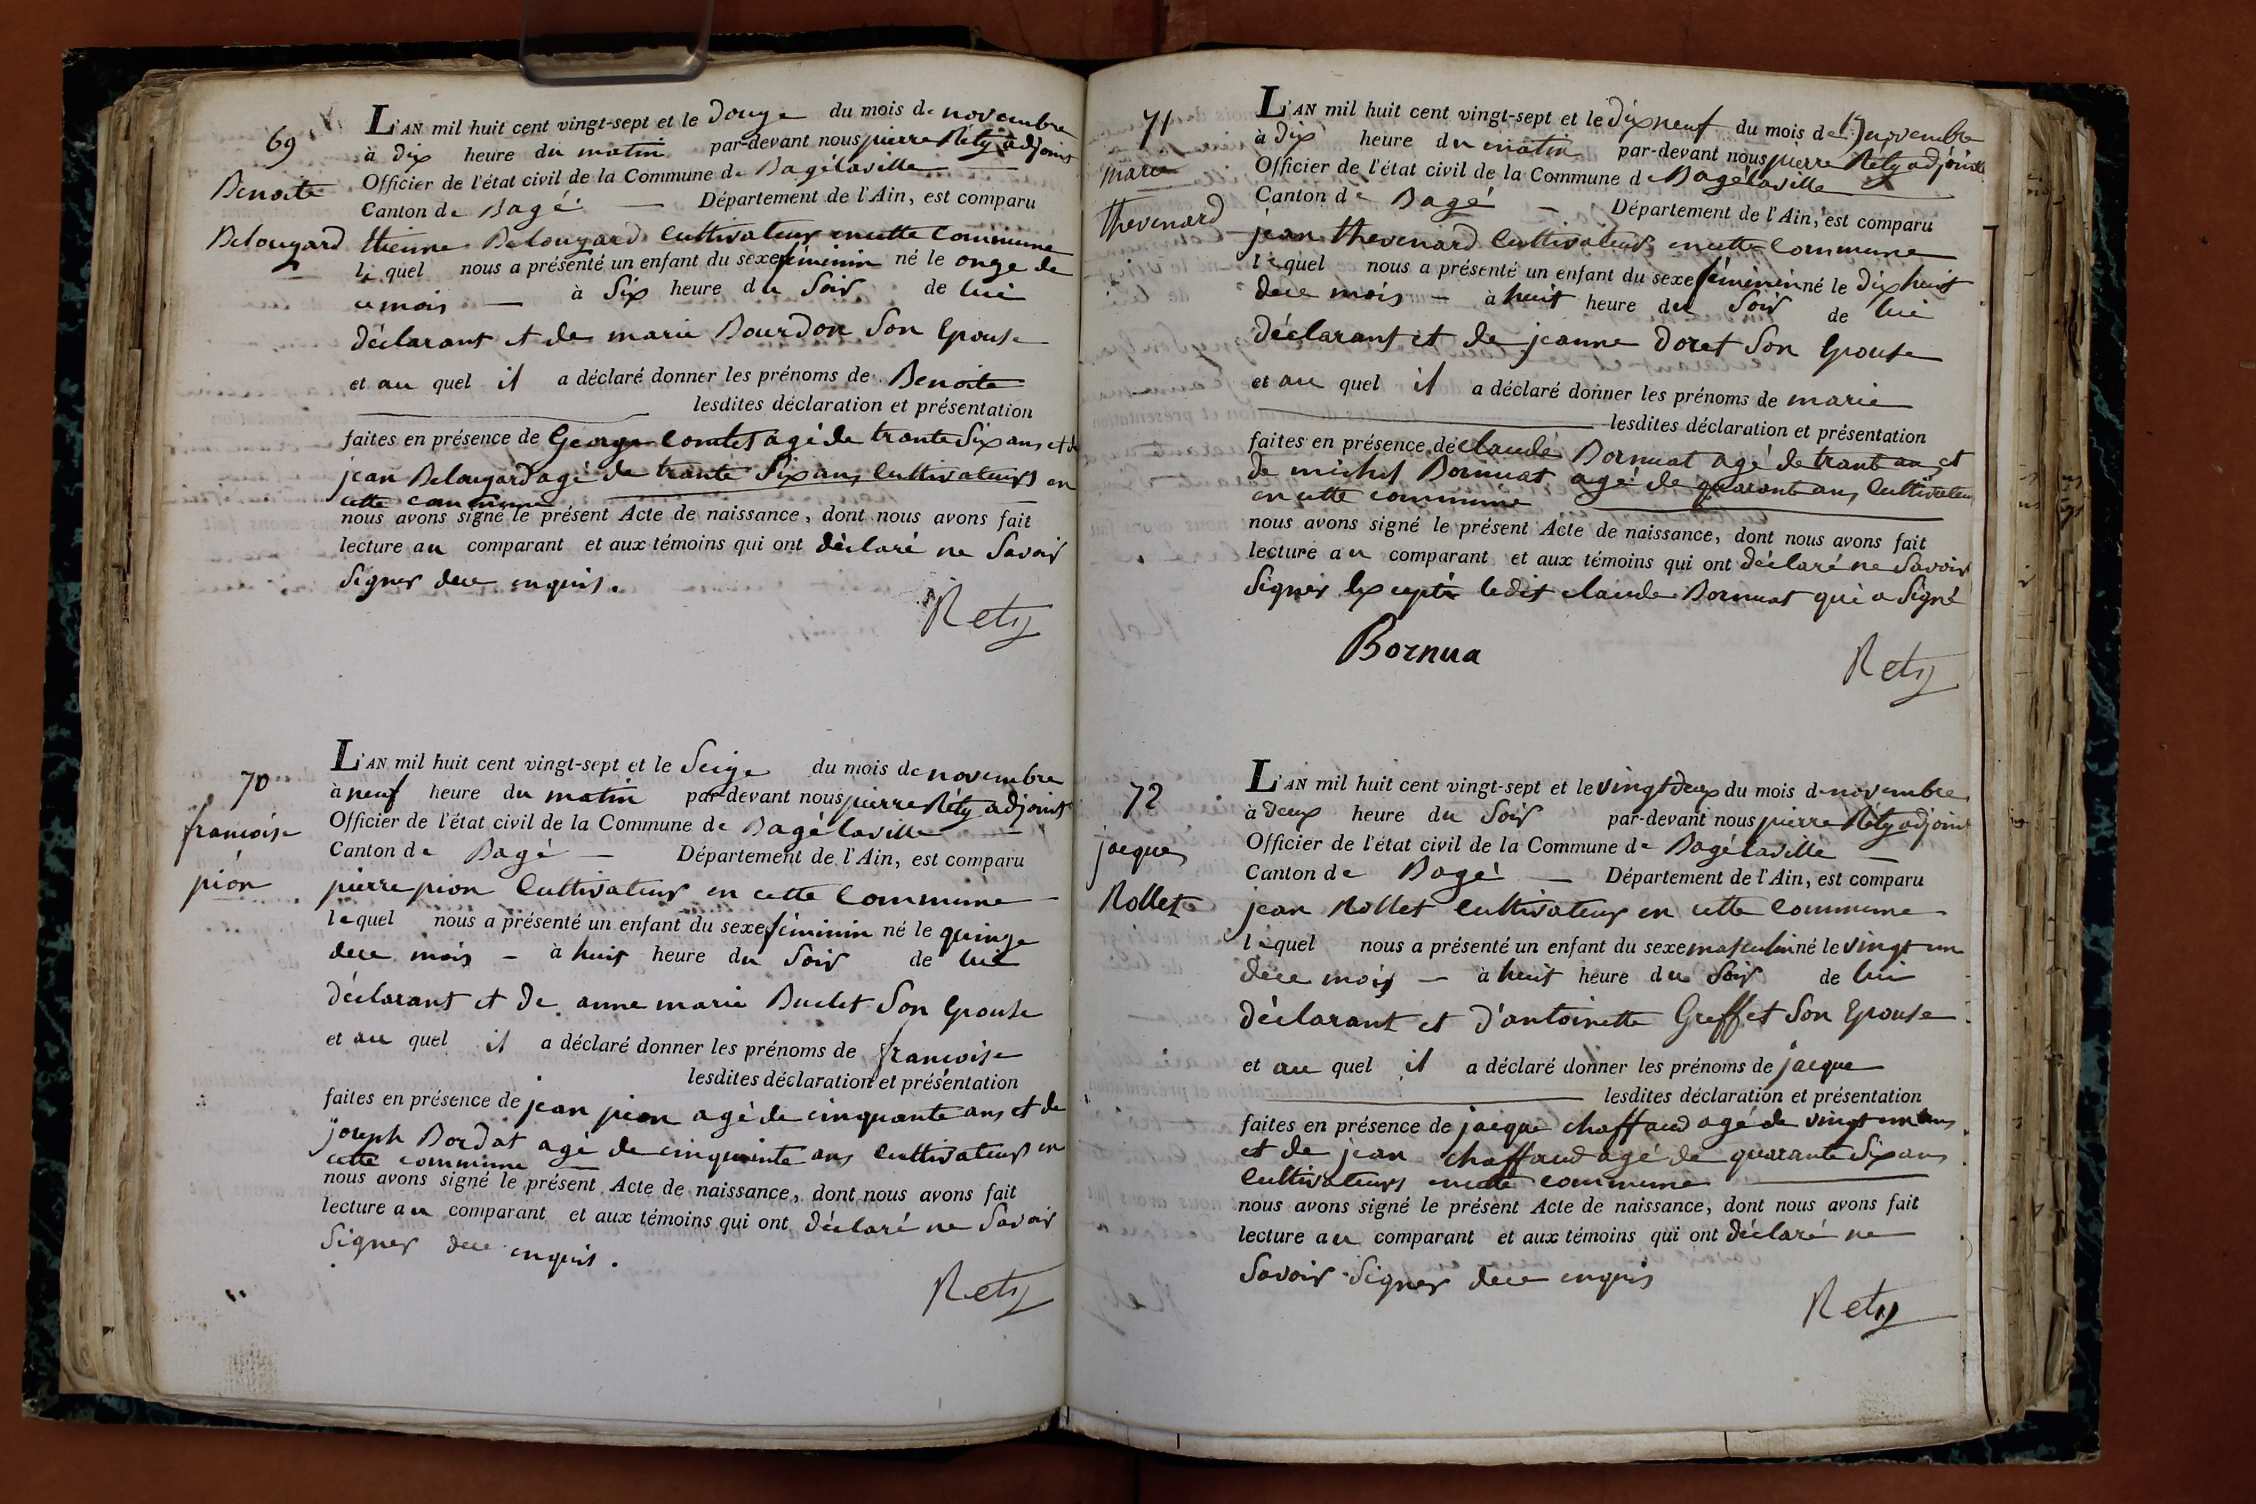 69
Benoite
Belouzard
L'AN mil huit cent vingt-sept et le douze du mois de novembre
à dix heure du matin par-devant nous pierre Réty adjoint
Officier de l'état civil de la Commune de Bagélaville
Canton de Bagé — Département de l'Ain, est comparu
Etienne Belouzard cultivateur en cette commune
lequel nous a présenté un enfant du sexe féminin né le onze de
ce mois — à six heure du soir de lui
déclarant et de marie Bourdon son Epouse
et au quel il a déclaré donner les prénoms de Benoite
lesdites déclaration et présentation
faites en présence de George Comtet agé de trante six ans et de
jean Belouzard agé de trante six ans, cultivateurs en
cette commune
nous avons signé le présent Acte de naissance, dont nous avons fait
lecture au comparant et aux témoins qui ont déclaré ne savoir
signer dece enquis.
Rety
70
francoise
pion
L'AN mil huit cent vingt-sept et le seize du mois de novembre
à neuf heure du matin par-devant nous pierre Réty adjoint
Officier de l'état civil de la Commune de Bagélaville
Canton de Bagé — Département de l'Ain, est comparu
pierre pion cultivateur en cette commune
lequel nous a présenté un enfant du sexe féminin né le quinze
dece mois — à huit heure du soir de lui
déclarant et de anne marie Buclet son Epouse
et au quel il a déclaré donner les prénoms de francoise
lesdites déclaration et présentation
faites en présence de jean pion agé de cinquante ans et de
joseph Bordat agé de cinquante ans cultivateurs en
cette commune
nous avons signé le présent Acte de naissance, dont nous avons fait
lecture au comparant et aux témoins qui ont déclaré ne savoir
signer dece enquis.
Rety
71
marie
thevenard
L'AN mil huit cent vingt-sept et le dix neuf du mois de novembre
à dix heure du matin par-devant nous pierre Réty adjoint
Officier de l'état civil de la Commune de Bagélaville
Canton de Bagé — Département de l'Ain, est comparu
jean thevenard cultivateur en cette commune
lequel nous a présenté un enfant du sexe féminin né le dix huit
dece mois — à huit heure du soir de lui
déclarant et de jeanne doret son Epouse
et au quel il a déclaré donner les prénoms de marie
lesdites déclaration et présentation
faites en présence de claude Bornuat agé de trante ans et
de michel Bornuat agé de quarante ans, cultivateurs
en cette commune
nous avons signé le présent Acte de naissance, dont nous avons fait
lecture au comparant et aux témoins qui ont déclaré ne savoir
signer Excepté ledit claude Bornuat qui a signé
Bornua
Rety
72
jacque
Rollet
L'AN mil huit cent vingt-sept et le vingt deux du mois de novembre
à deux heure du soir par-devant nous pierre Réty adjoint
Officier de l'état civil de la Commune de Bagélaville
Canton de Bagé — Département de l'Ain, est comparu
jean Rollet cultivateur en cette commune
lequel nous a présenté un enfant du sexe masculin né le vingt un
dece mois — à huit heure du soir de lui
déclarant et d'antoinette Greffet son Epouse
et au quel il a déclaré donner les prénoms de jacque
lesdites déclaration et présentation
faites en présence de jacque chaffaud agé de vingt un ans
et de jean chaffaud agé de quarante six ans
cultivateurs en cette commune
nous avons signé le présent Acte de naissance, dont nous avons fait
lecture au comparant et aux témoins qui ont déclaré ne
savoir signer dece enquis
Rety